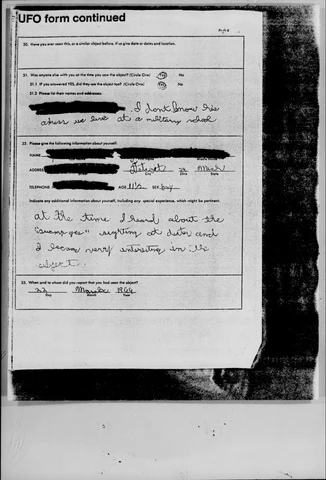 UFO form continued
30. Have you ever seen this, or a similar object before. If so give date or dates and location.
31. Was anyone else with you at the time you saw the object? (Circle One) Yes No
31.1 If you answered YES, did they see the object too? (Circle One) Yes No
31.2 Please list their names and addresses:
I dont know his
adress we live at a military school
32. Please give the following information about yourself:
NAME
ADDRESS Detroit Mich
City Zone State
TELEPHONE AGE 11½ SEX boy
Indicate any additional information about yourself, including any special experience, which might be pertinent.
at the time I heard about the
"swamp gas" sighting at dexter and
I became very interesting in the
subject.
33. When and to whom did you report that you had seen the object?
22 March 1966
Day Month Year